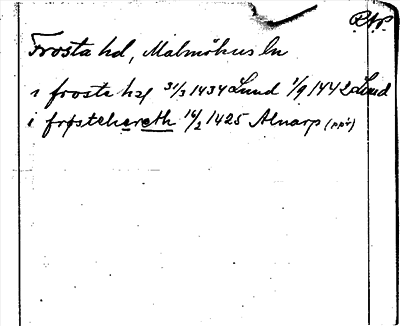 RAP.
Frosta hd, Malmöhus ln
i frosta hd 31/3 1434 Lund 1/9 1442 Lund
i frøstehereth 16/2 1425 Alnarp (ppr)